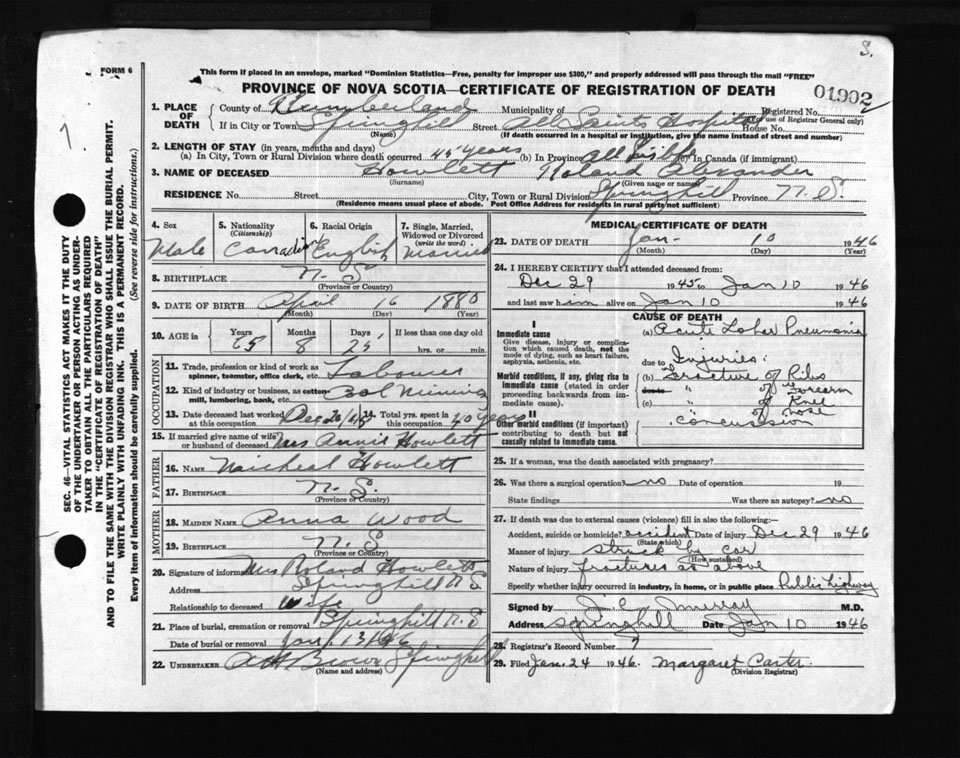 S.
FORM 6
This form if placed in an envelope, marked "Dominion Statistics—Free, penalty for improper use $300," and properly addressed will pass through the mail "FREE"
PROVINCE OF NOVA SCOTIA—CERTIFICATE OF REGISTRATION OF DEATH
01902
SEC. 46—VITAL STATISTICS ACT MAKES IT THE DUTY
OF THE UNDERTAKER OR PERSON ACTING AS UNDER-
TAKER TO OBTAIN ALL THE PARTICULARS REQUIRED
IN THE "CERTIFICATE OF REGISTRATION OF DEATH"
AND TO FILE THE SAME WITH THE DIVISION REGISTRAR WHO SHALL ISSUE THE BURIAL PERMIT.
WRITE PLAINLY WITH UNFADING INK. THIS IS A PERMANENT RECORD.
Every item of information should be carefully supplied. (See reverse side for instructions.)
1. PLACE OF DEATH County of Cumberland Municipality of Registered No.
(For use of Registrar General only)
If in City or Town Springhill Street All Saints Hospital House No.
(Name) (If death occurred in a hospital or institution, give the name instead of street and number)
2. LENGTH OF STAY (in years, months and days)
(a) In City, Town or Rural Division where death occurred 45 years (b) In Province All Life (c) In Canada (if immigrant)
3. NAME OF DECEASED Howlett Roland Alexander
(Surname) (Given name or names)
RESIDENCE No. Street City, Town or Rural Division Springhill Province N.S.
(Residence means usual place of abode. Post Office Address for residents in rural parts not sufficient)
4. Sex Male
5. Nationality (Citizenship) Canadian
6. Racial Origin English
7. Single, Married, Widowed or Divorced (write the word) Married
8. BIRTHPLACE N.S.
(Province or Country)
9. DATE OF BIRTH April 16 1880
(Month) (Day) (Year)
10. AGE in Years Months Days If less than one day old
65 8 25 hrs. or min.
OCCUPATION
11. Trade, profession or kind of work as spinner, teamster, office clerk, etc. Labourer
12. Kind of industry or business, as cotton mill, lumbering, bank, etc. Coal Mining
13. Date deceased last worked at this occupation Dec 20/45
14. Total yrs. spent in this occupation 40 years
15. If married give name of wife or husband of deceased Mrs Annie Howlett
FATHER
16. NAME Micheal Howlett
17. BIRTHPLACE N.S.
(Province or Country)
MOTHER
18. MAIDEN NAME Anna Wood
19. BIRTHPLACE N.S
(Province or Country)
20. Signature of informant Mrs Roland Howlett
Address Springhill N.S
Relationship to deceased Wife
21. Place of burial, cremation or removal Springhill N.S
Date of burial or removal Jan. 13/1946
22. UNDERTAKER Brown Springhill
(Name and address)
MEDICAL CERTIFICATE OF DEATH
23. DATE OF DEATH Jan- 10 1946
(Month) (Day) (Year)
24. I HEREBY CERTIFY that I attended deceased from:
Dec 29 1945 to Jan 10 1946
and last saw him alive on Jan 10 1946
CAUSE OF DEATH
I
Immediate cause
Give disease, injury or complication which caused death, not the mode of dying, such as heart failure, asphyxia, asthenia, etc.
(a) Acute Lobar Pneumonia
due to Injuries:
Morbid conditions, if any, giving rise to immediate cause (stated in order proceeding backwards from immediate cause).
(b) Fracture of Ribs
" of Forearm
(c) " of Knee
" of nose
II
Other morbid conditions (if important) contributing to death but not causally related to immediate cause.
concussion
25. If a woman, was the death associated with pregnancy?
26. Was there a surgical operation? no Date of operation 19
State findings Was there an autopsy? no
27. If death was due to external causes (violence) fill in also the following:—
Accident, suicide or homicide? accident Date of injury Dec 29 1946
(State which)
Manner of injury struck by car
(How sustained)
Nature of injury fractures as above
Specify whether injury occurred in industry, in home, or in public place Public highway
Signed by J. C. Murray M.D.
Address Springhill Date Jan 10 1946
28. Registrar's Record Number 7
29. Filed Jan. 24 1946. Margaret Carter
(Division Registrar)